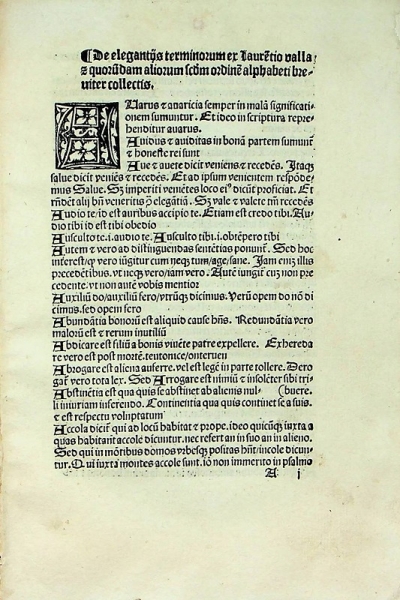 ¶De elegantijs terminorum ex Laurētio valla
⁊ quorūdam aliorum scd̄m ordinē alphabeti bre-
uiter collectis.
AUarus ⁊ auaricia semper in malā significati-
onem sumuntur. Et ideo in scriptura repre-
henditur auarus.
Auidus ⁊ auiditas in bonā partem sumunt̄
⁊ honeste rei sunt
Aue ⁊ auete dicit veniens ⁊ recedēs. Itaqꝫ
salue dicit veniēs ⁊ recedēs. Et ad ipsum venientem respōde-
mus Salue. Sꝫ imperiti veniētes loco eiꝰ dicūt proficiat. Et
rn̄dēt alij bn̄ veneritis ꝓ elegātia. Sꝫ vale ⁊ valete tm̄ recedēs
Audio te/id est auribus accipio te. Etiam est credo tibi. Au-
dio tibi id est tibi obedio
Ausculto te.i.audio te. Ausculto tibi.i.obtēpero tibi
Autem ⁊ vero ad distinguendas sentētias ponunt̄. Sed hoc
interest/qꝫ vero iūgitur cum neqꝫ tum/age/sane. Jam eniꝫ illis
precedētibus.vt neqꝫ vero/iam vero. Autē iungit̄ cuꝫ non pre-
cedente.vt non autē vobis mentior
Auxiliū do/auxiliū fero/vtrūqꝫ dicimus. Verū opem do nō di
cimus.sed opem fero
Abundātia bonorū est aliquid cause hn̄s. Redundātia vero
malorū est ⁊ rerum inutiliū
Abdicare est filiū a bonis viuēte patre expellere. Exhereda
re vero est post mortē.
Abrogare est aliena auferre.vel est legē in parte tollere. Dero
gar̄ vero tota lex. Sed Arrogare est nimiū ⁊ insolēter sibi tri-
Abstinētia est qua quis se abstinet ab alienis nul- (buere.
li iniuriam inferendo. Continentia qua quis continet se a suis.
⁊ est respectu voluptatum
Accola dicit̄ qui ad locū habitat ꝓ prope. ideo quicūqꝫ iuxta a
quas habitant accole dicuntur. nec refert an in suo an in alieno.
Sed qui in mōribus domos vrbesqꝫ positas hn̄t/incole dicun-
tur. Qui iuxta montes accole sunt.iō non immerito in psalmo
A j